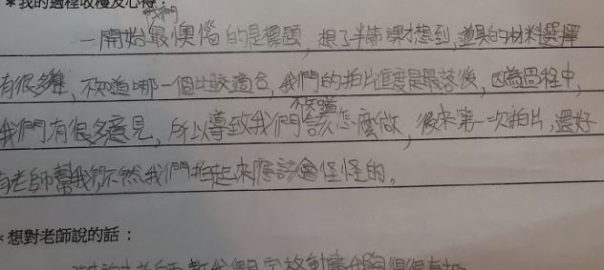 *我的過程收穫及心得：
一開始我們最懊惱的是標題，想了半節課才想到，道具的材料選擇
有很多種，不知道哪一個比較適合，我們的拍片進度是最落後，因為過程中，
我們有很多意見，所以導致我們不知道該怎麼做，後來第一次拍片，還好
有老師幫我們不然我們拍起來應該會怪怪的。
*想對老師說的話：